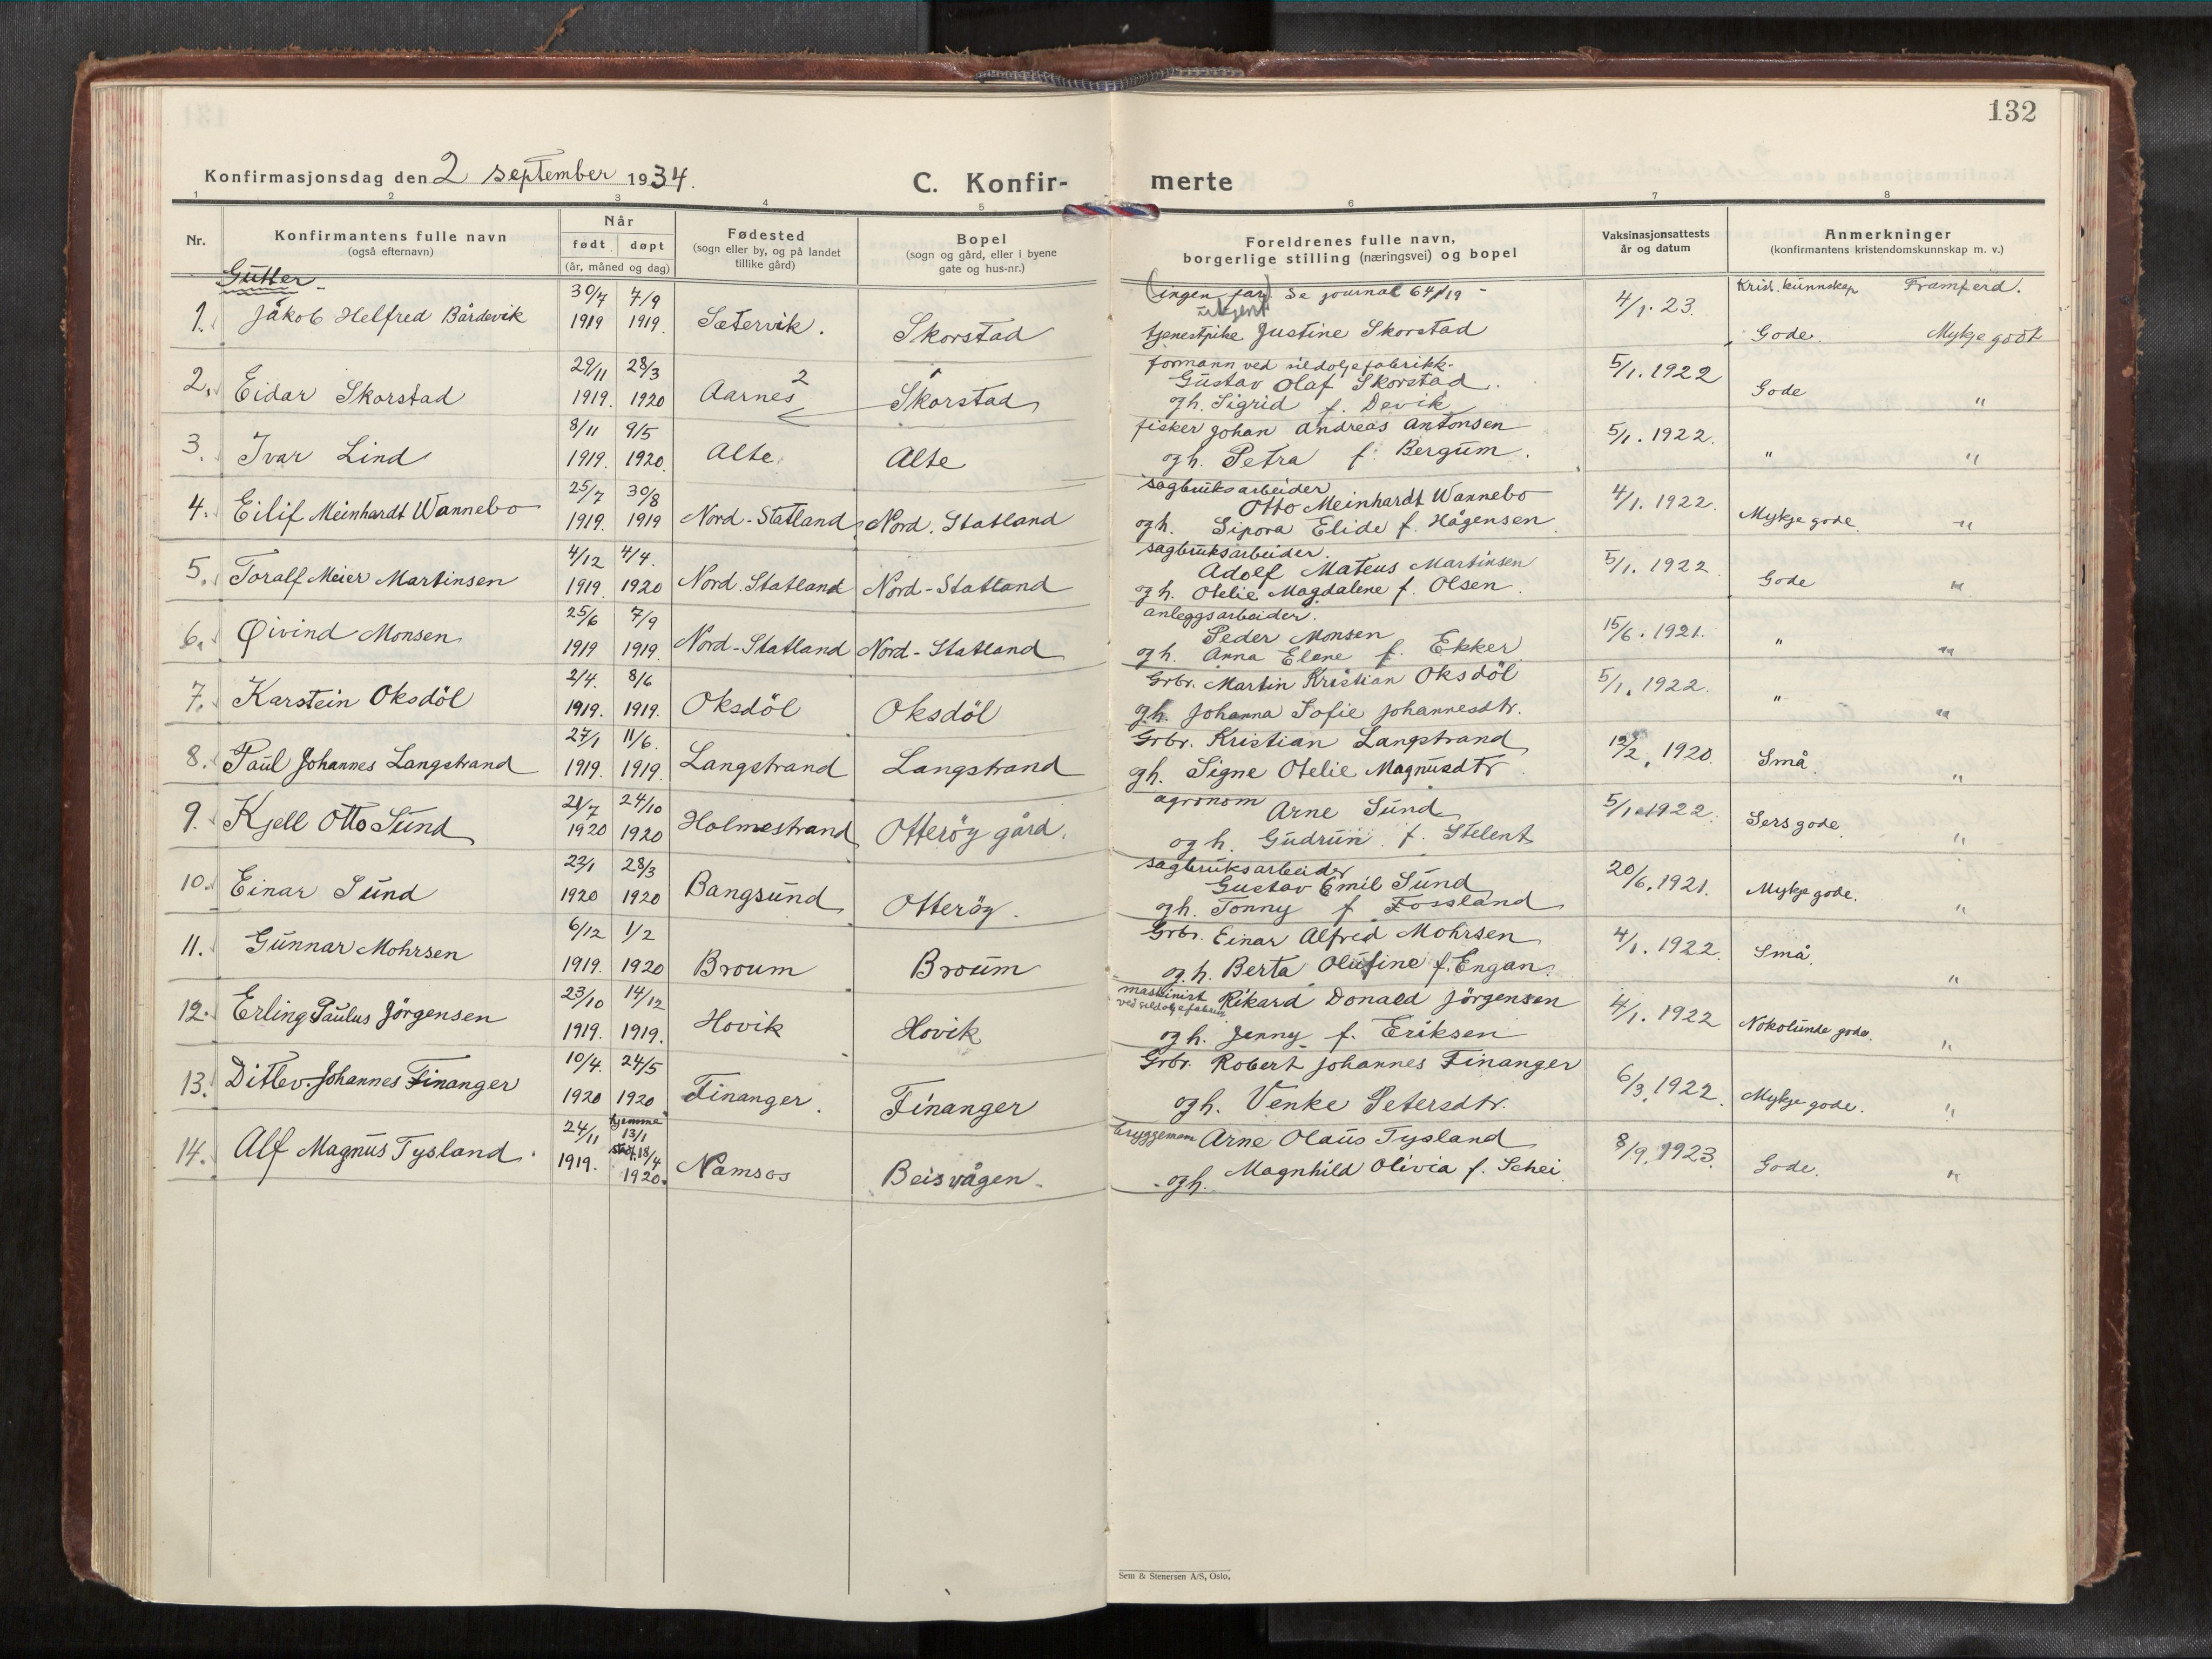 132
Konfirmasjonsdag den 2 september 1934.
C. Konfir-
merte
1 2 3 4 5 6 7 8
Nr.
Konfirmantens fulle navn
(også efternavn)
Når
født døpt
(år, måned og dag)
Fødested
(sogn eller by, og på landet
tillike gård)
Bopel
(sogn og gård, eller i byene
gate og hus-nr.)
Foreldrenes fulle navn,
borgerlige stilling (næringsvei) og bopel
Vaksinasjonsattests
år og datum
Anmerkninger
(konfirmantens kristendomskunnskap m. v.)
Gutter
30/7 7/9 (ingen far) Se journal 64/19 - Krist. kunnskap Framferd.
1. Jakob Helfred Bårdevik 1919 1919. Sætervik. Skorstad tjenestpike Justine Skorstad 4/1. 23. Gode. Mykje godt
29/11 28/3 formann ved sildoljefabrikk.
2. Eidar Skorstad 1919. 1920 Aarnes 2 Skorstad Gustav Olaf Skorstad. 5/1. 1922 Gode "
og h. Sigrid f. Devik
8/11 9/5 fisker Johan Andreas Antonsen
3. Ivar Lind 1919. 1920. Alte Alte og h. Petra f. Bergum. 5/1. 1922. " "
25/7 30/8 sagbruksarbeider
4. Eilif Meinhardt Wannebo 1919. 1919 Nord-Statland Nord. Statland Otto Meinhardt Wannebo 4/1. 1922. Mykje gode. "
og h. Sipora Elide f. Hågensen.
4/12 4/4. sagbruksarbeider.
5. Toralf Meier Martinsen 1919. 1920 Nord. Statland Nord-Statland Adolf Mateus Martinsen 5/1. 1922 Gode "
og h. Otelie Magdalene f. Olsen.
25/6 7/9 anleggsarbeider.
6. Øivind Monsen 1919 1919. Nord-Statland Nord-Statland Peder Monsen 15/6. 1921. " "
og h. Anna Elene f. Ekker
2/4. 8/6 Grbr. Martin Kristian Oksdöl
7. Karstein Oksdöl 1919. 1919. Oksdöl Oksdöl og h. Johanna Sofie Johannesdtr. 5/1. 1922. " "
27/1 11/6. Grbr. Kristian Langstrand
8. Paul Johannes Langstrand 1919. 1919. Langstrand Langstrand og h. Signe Otelie Magnusdtr 1920. Små. "
24/10 agronom Arne Sund
9. Kjell Otto Sund 1920 1920 Holmestrand Otteröy gård. og h. Gudrun f. Stelent 5/1 1922. Sers gode. "
28/3 sagbruksarbeider
10. Einar Sund 1920 1920 Bangsund Otteröy. Gustav Emil Sund 20/6. 1921. Mykje gode. "
og h. Tonny f. Fossland
6/12 1/2 Grbr. Einar Alfred Mohrsen
11. Gunnar Mohrsen 1919. 1920 Broum Broum og h. Berta Olufine f. Engan. 4/1. 1922. Små. "
23/10 14/12 maskinist ved sildoljefabrikk Rikard Donald Jörgensen
12. Erling Paulus Jörgensen 1919. 1919. Hovik Hovik og h. Jenny f. Eriksen 4/1. 1922 Nokolunde gode. "
10/4. 24/5 Grbr. Robert Johannes Finanger
13. Ditlev Johannes Finanger 1920 1920 Finanger. Finanger og h. Venke Petersdtr. 6/3. 1922. Mykje gode. "
24/11 hjemme 13/1 bryggemann Arne Olaus Tysland
14. Alf Magnus Tysland. 1919. stadf. 18/4 1920. Namsos Beisvågen. og h. Magnhild Olivia f. Schei 8/9. 1923. Gode. "
Sem & Stenersen A/S, Oslo.